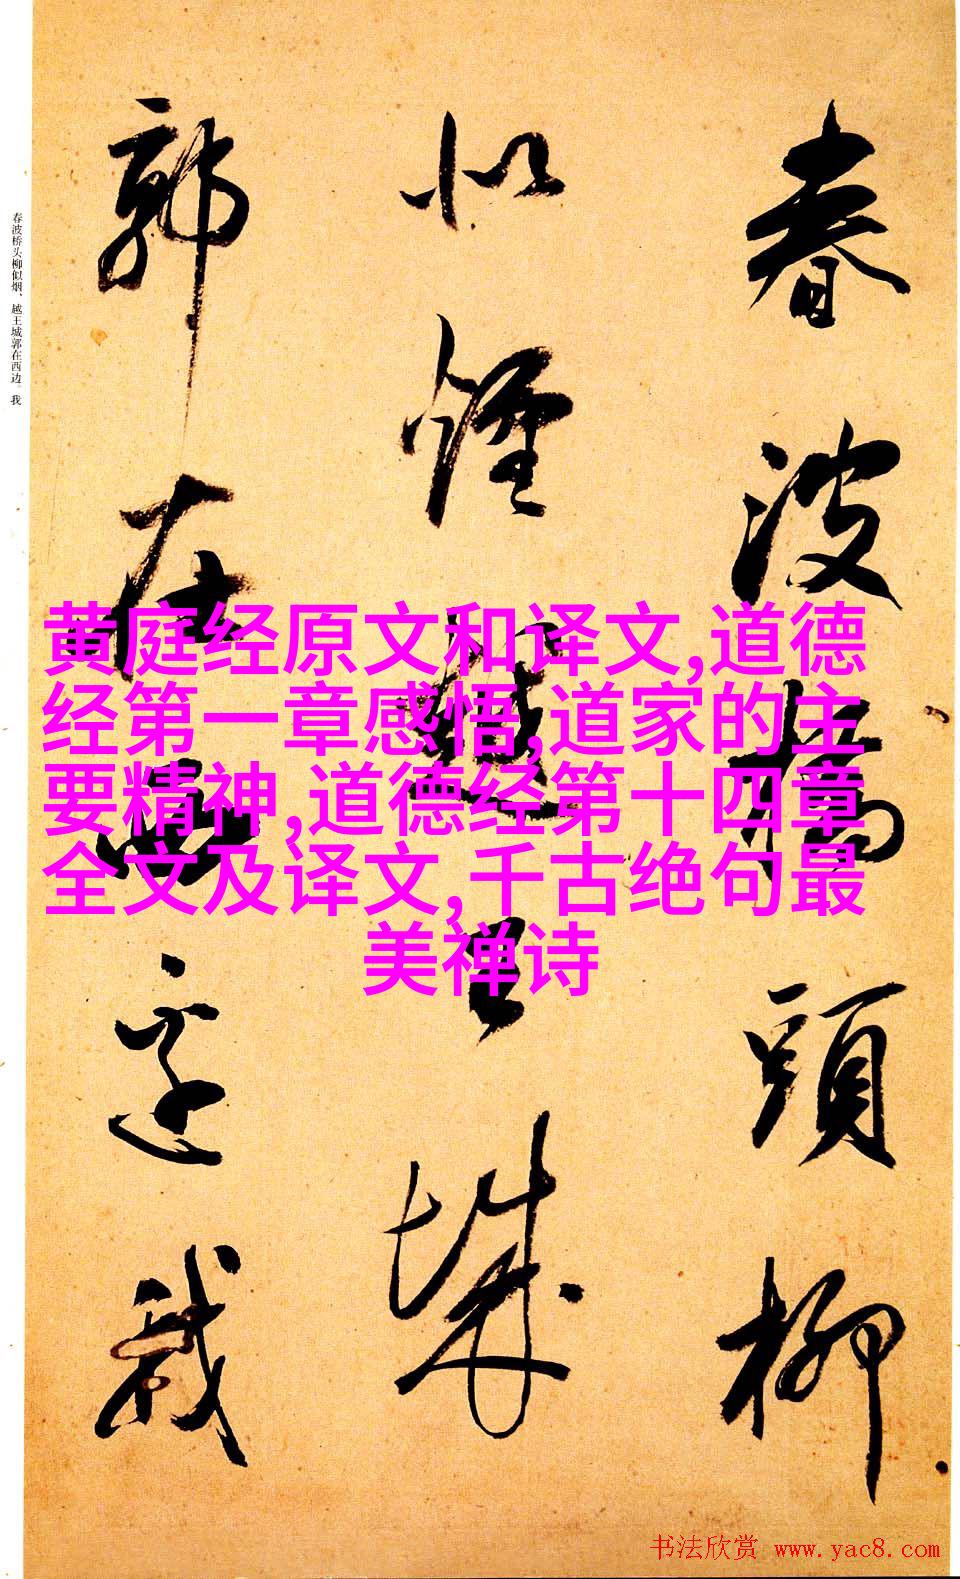 春波橋頭柳
似煙越王城
郭在西邊我
春波桥头柳似烟、越王城郭在西边。我
黄庭经原文和译文,道德
经第一章感悟,道家的主
要精神,道德经第十四章
全文及译文,千古绝句最
美禅诗
书法欣赏 www.yac8.com